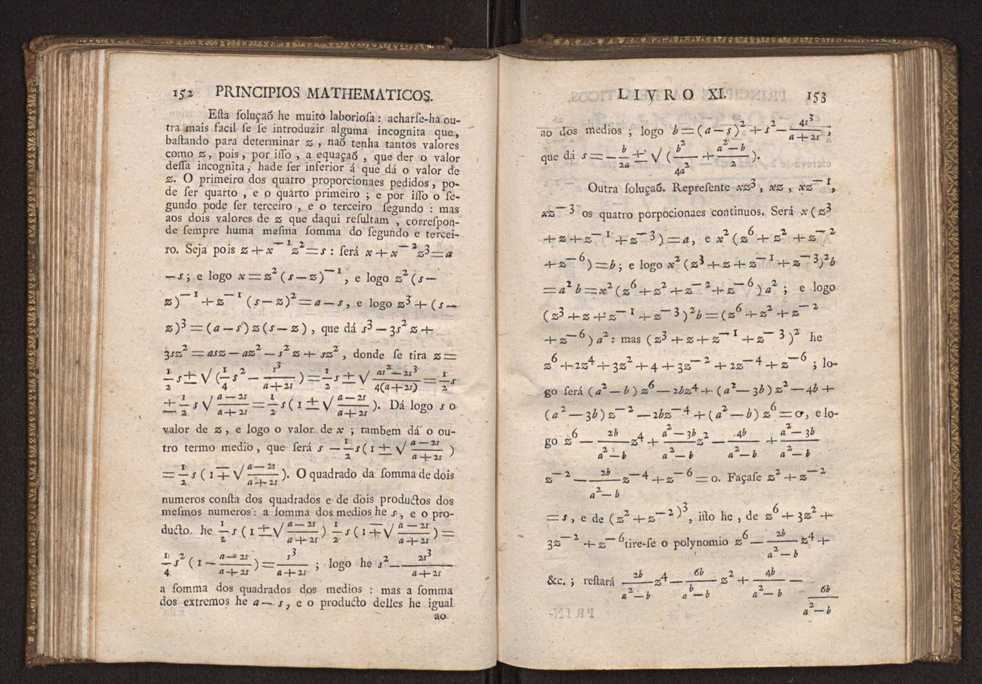 152 PRINCIPIOS MATHEMATICOS.
Eſta ſoluçaõ he muito laborioſa : acharſe-ha ou-
tra mais facil ſe ſe introduzir alguma incognita que,
baſtando para determinar z , naõ tenha tantos valores
como z, pois, por iſſo , a equaçaõ , que der o valor
deſſa incognita, hade ſer inferior á que dá o valor de
z. O primeiro dos quatro proporcionaes pedidos, po-
de ſer quarto , e o quarto primeiro ; e por iſſo o ſe-
gundo pode ſer terceiro , e o terceiro ſegundo : mas
aos dois valores de z que daqui reſultam , correſpon-
de ſempre huma meſma ſomma do ſegundo e tercei-
ro. Seja pois z + x⁻¹z² = s : ſerá x + x⁻²z³ = a
— s ; e logo x = z² (s — z)⁻¹ , e logo z² (s —
z)⁻¹ + z⁻¹ (s — z)² = a — s , e logo z³ + (s —
z)³ = (a — s) z (s — z) , que dá s³ — 3s² z +
3sz² = asz — az² — s² z + sz² , donde ſe tira z =
1/2 s ± √(1/4 s² — s³/(a + 2s)) = 1/2 s ± √((as² — 2s³)/(4(a + 2s))) = 1/2 s
± 1/2 s √((a — 2s)/(a + 2s)) = 1/2 s (1 ± √((a — 2s)/(a + 2s))). Dá logo s o
valor de z , e logo o valor de x ; tambem dá o ou-
tro termo medio , que ſerá s — 1/2 s (1 ± √((a — 2s)/(a + 2s)))
= 1/2 s (1 ∓ √((a — 2s)/(a + 2s))). O quadrado da ſomma de dois
numeros conſta dos quadrados e de dois productos dos
meſmos numeros : a ſomma dos medios he s , e o pro-
ducto he 1/2 s (1 ± √((a — 2s)/(a + 2s))) 1/2 s (1 ∓ √((a — 2s)/(a + 2s))) =
1/4 s² (1 — (a — 2s)/(a + 2s)) = s³/(a + 2s) ; logo he s² — 2s³/(a + 2s)
a ſomma dos quadrados dos medios : mas a ſomma
dos extremos he a — s , e o producto delles he igual
ao
LIVRO XI. 153
ao dos medios ; logo b = (a — s)² + s² — 4s³/(a + 2s) ,
que dá s = — b/2a ± √(b²/4a² + (a² — b)/2).
Outra ſoluçaõ. Repreſente xz³ , xz , xz⁻¹,
xz⁻³ os quatro porpocionaes continuos. Será x (z³
+ z + z⁻¹ + z⁻³) = a , e x² (z⁶ + z² + z⁻²
+ z⁻⁶) = b ; e logo x² (z³ + z + z⁻¹ + z⁻³)² b
= a² b = x² (z⁶ + z² + z⁻² + z⁻⁶) a² ; e logo
(z³ + z + z⁻¹ + z⁻³)² b = (z⁶ + z² + z⁻²
+ z⁻⁶) a² : mas (z³ + z + z⁻¹ + z⁻³)² he
z⁶ + 2z⁴ + 3z² + 4 + 3z⁻² + 2z⁻⁴ + z⁻⁶ ; lo-
go ſerá (a² — b) z⁶ — 2bz⁴ + (a² — 3b) z² — 4b +
(a² — 3b) z⁻² — 2bz⁻⁴ + (a² — b) z⁶ = 0, e lo-
go z⁶ — 2b/(a² — b) z⁴ + (a² — 3b)/(a² — b) z² — 4b/(a² — b) + (a² — 3b)/(a² — b)
z⁻² — 2b/(a² — b) z⁻⁴ + z⁻⁶ = 0. Façaſe z² + z⁻²
= s , e de (z² + z⁻²)³ , iſto he , de z⁶ + 3z² +
3z⁻² + z⁻⁶ tire-ſe o polynomio z⁶ — 2b/(a² — b) z⁴ +
&c. ; reſtará 2b/(a² — b) z⁴ — 6b/(a² — b) z² + 4b/(a² — b) —
6b/(a² — b)